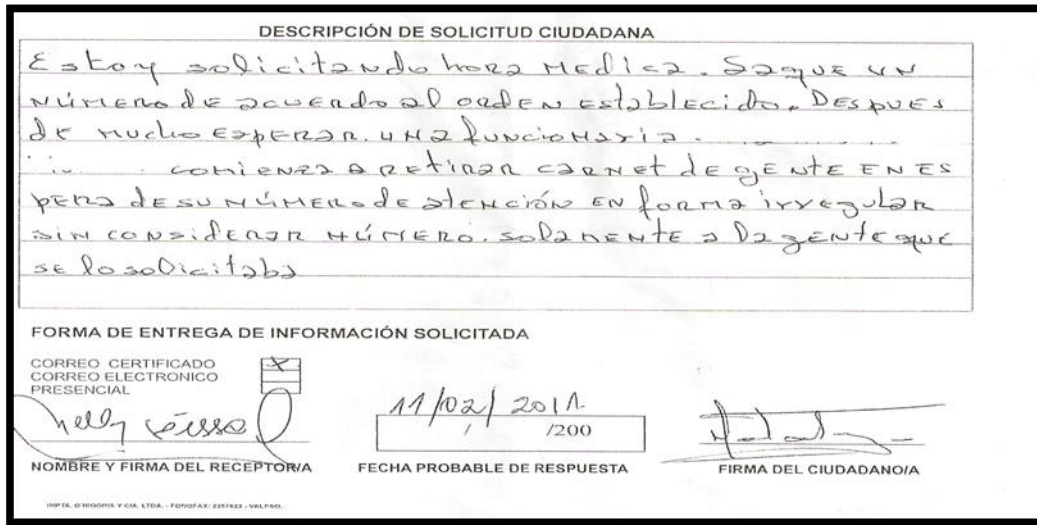 DESCRIPCIÓN DE SOLICITUD CIUDADANA
Estoy solicitando hora Medica. Saque un
número de acuerdo al orden establecido. Despues
de mucho esperar. una funcionaria.
comienza a retirar carnet de gente en es
pera de su número de atención en forma irregular
sin considerar número. solamente a la gente que
se lo solicitaba
FORMA DE ENTREGA DE INFORMACIÓN SOLICITADA
CORREO CERTIFICADO X
CORREO ELECTRONICO
PRESENCIAL
Nelly
11/02/2011
/ /200
NOMBRE Y FIRMA DEL RECEPTOR/A FECHA PROBABLE DE RESPUESTA FIRMA DEL CIUDADANO/A
IMPTA. O'HIGGINS Y CIA. LTDA. - FONOFAX: 2257623 - VALPSO.